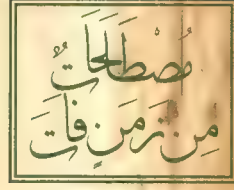 مُصْطَلَحَاتٌ
مِنْ زَمَنٍ فَاتَ